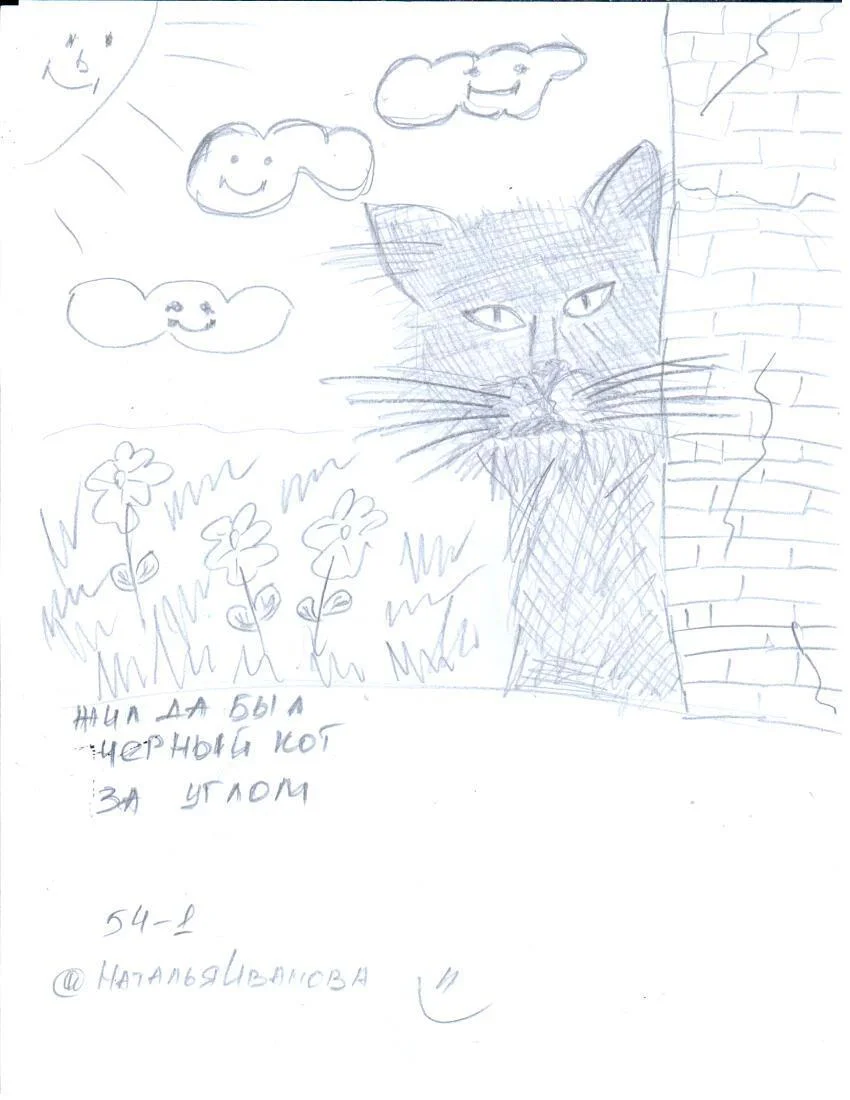 ЖИЛ ДА БЫЛ
ЧЕРНЫЙ КОТ
ЗА УГЛОМ
54-1
@НАТАЛЬЯИВАНОВА